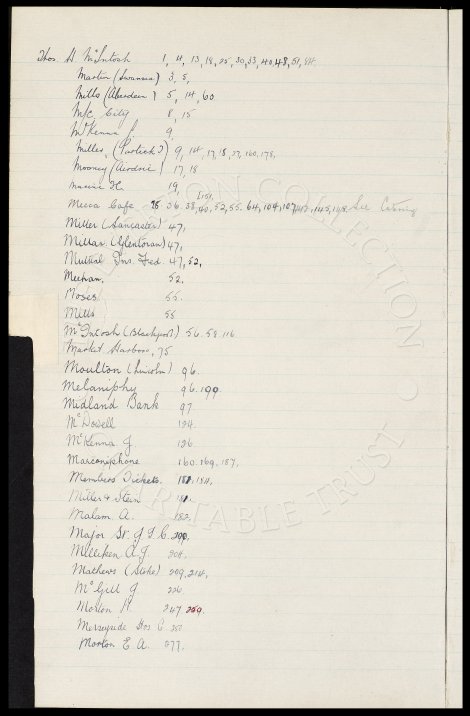 Thos. H. McIntosh 1, 4, 13, 18, 25, 30, 33, 40, 48, 51, 84
Martin (Swansea) 3, 5,
Mills (Aberdeen) 5, 14, 60
M/c City 8, 15
McKenna J. 9
Miller, (Partick T) 9, 14, 17, 18, 37, 160, 178,
Mooney (Airdrie) 17, 18
H. 19,
Mecca Cafe 25 36 38, 40, 52, 55. 64, 104, 107, 145, 148 See Catering
Miller (Lancaster) 47,
Millar (Glentoran) 47,
Mutual Ins. Fed. 47, 52,
Meehan, 52.
Moses 55.
Mills 55
McIntosh (Blackpool) 56. 58. 116
Market Harboro, 75
Moulton (Lincoln) 96.
Melaniphy 96. 199.
Midland Bank 97
McDowell 124.
McKenna J. 126
Marconiphone 160. 169. 187,
Members Tickets. 181. 184,
Miller & Stein 181.
Malam A. 182.
Major Sr. J.D.C. 200.
Milliken A.J. 208.
Mathews (Stoke) 209, 214,
McGill J 226
Morton H. 247 259.
Merseyside Hos C. 257
Morton E. A. 277.
COLLECTION
CHARITABLE TRUST